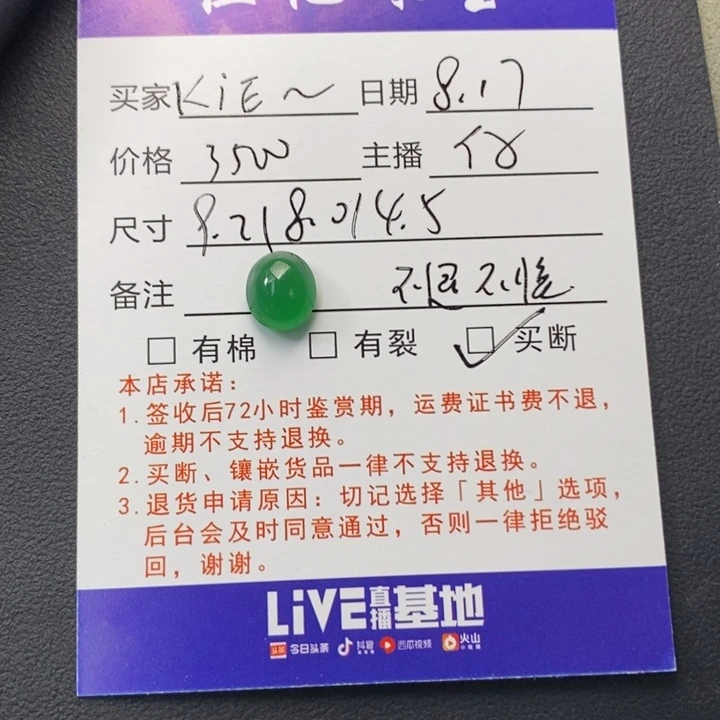 买家 KiE～ 日期 8.17
价格 3500 主播
尺寸 9.2/8.0/4.5
备注 不退不换
□ 有棉 □ 有裂 ☑ 买断
本店承诺：
1.签收后72小时鉴赏期，运费证书费不退，
逾期不支持退换。
2.买断、镶嵌货品一律不支持退换。
3.退货申请原因：切记选择「其他」选项，
后台会及时同意通过，否则一律拒绝驳
回，谢谢。
LiVE直播基地
头条 今日头条 抖音 西瓜视频 火山